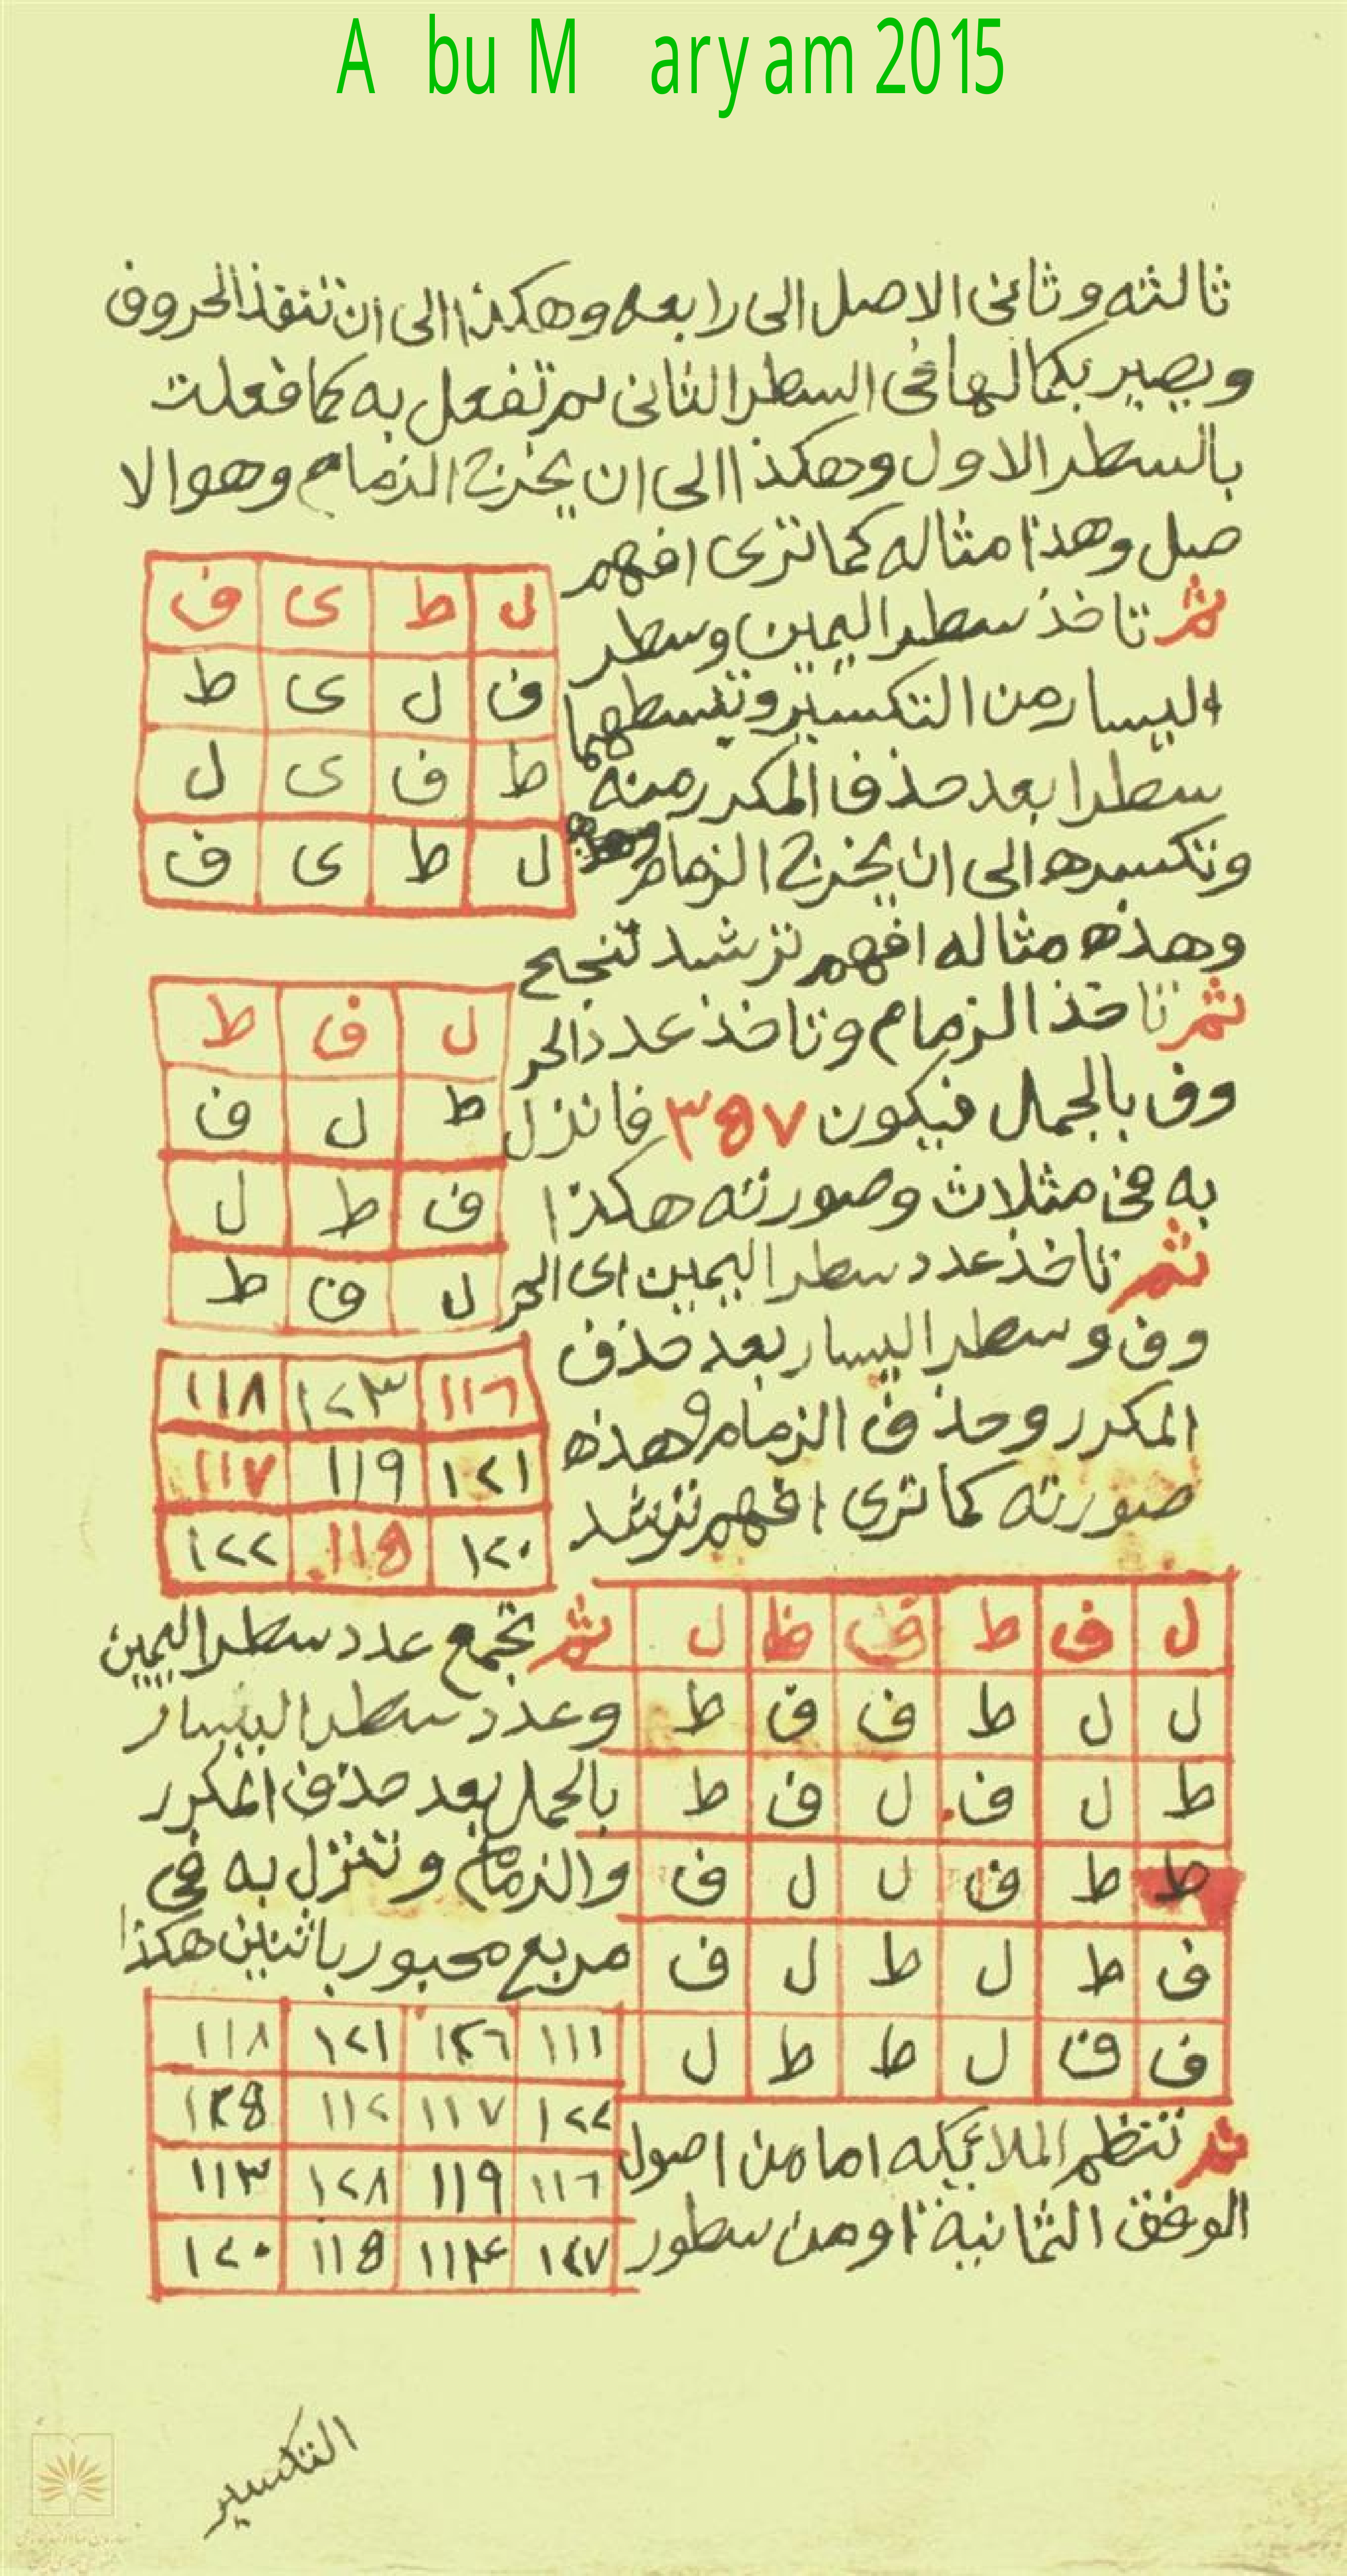 A bu M aryam 2015
ثالثه وثانى الاصل الى رابعه وهكذا الى ان تنفذ الحروف
ويصير بكمالها فى السطر الثانى ثم تفعل به كما فعلت
بالسطر الاول وهكذا الى ان يخرج الزمام وهو الا
صل وهذا مثاله كما ترى افهم
ثم تاخذ سطر اليمين وسطر
اليسار من التكسير وتبسطهما
سطرا بعد حذف المكرر منه
وتكسره الى ان يخرج الزمام
وهذه مثاله افهم ترشد تنجح
ثم تاخذ الزمام وتاخذ عدد الحر
وف بالجمل فيكون ٣٥٧ فانزل
به فى مثلاث وصورته هكذا
ثم تاخذ عدد سطر اليمين اى الحر
وف وسطر اليسار بعد حذف
المكرر وحذف الزمام وهذه
صورته كما ترى افهم ترشد
ل ط ى ف
ف ل ى ط
ط ف ى ل
ل ط ى ف
ل ف ط
ط ل ف
ف ط ل
ل ف ط
١١٦ ١٢٣ ١١٨
١٢١ ١١٩ ١١٧
١٢٠ ١١٥ ١٢٢
ل ف ط ف ط ل
ل ل ط ف ف ط
ط ل ف ل ف ط
ط ط ف ل ل ف
ف ط ل ط ل ف
ف ف ل ط ط ل
ثم تجمع عدد سطر اليمين
وعدد سطر اليسار
بالجمل بعد حذف المكرر
والزمام وتنزل به فى
مربع مجبور باثنين هكذا
١١١ ١٢٦ ١٢١ ١١٨
١٢٢ ١١٧ ١١٢ ١٢٥
١١٦ ١١٩ ١٢٨ ١١٣
١٢٧ ١١٤ ١١٥ ١٢٠
ثم تنظم الملائكه اما من اصول
الوفق الثمانية او من سطور
التكسير